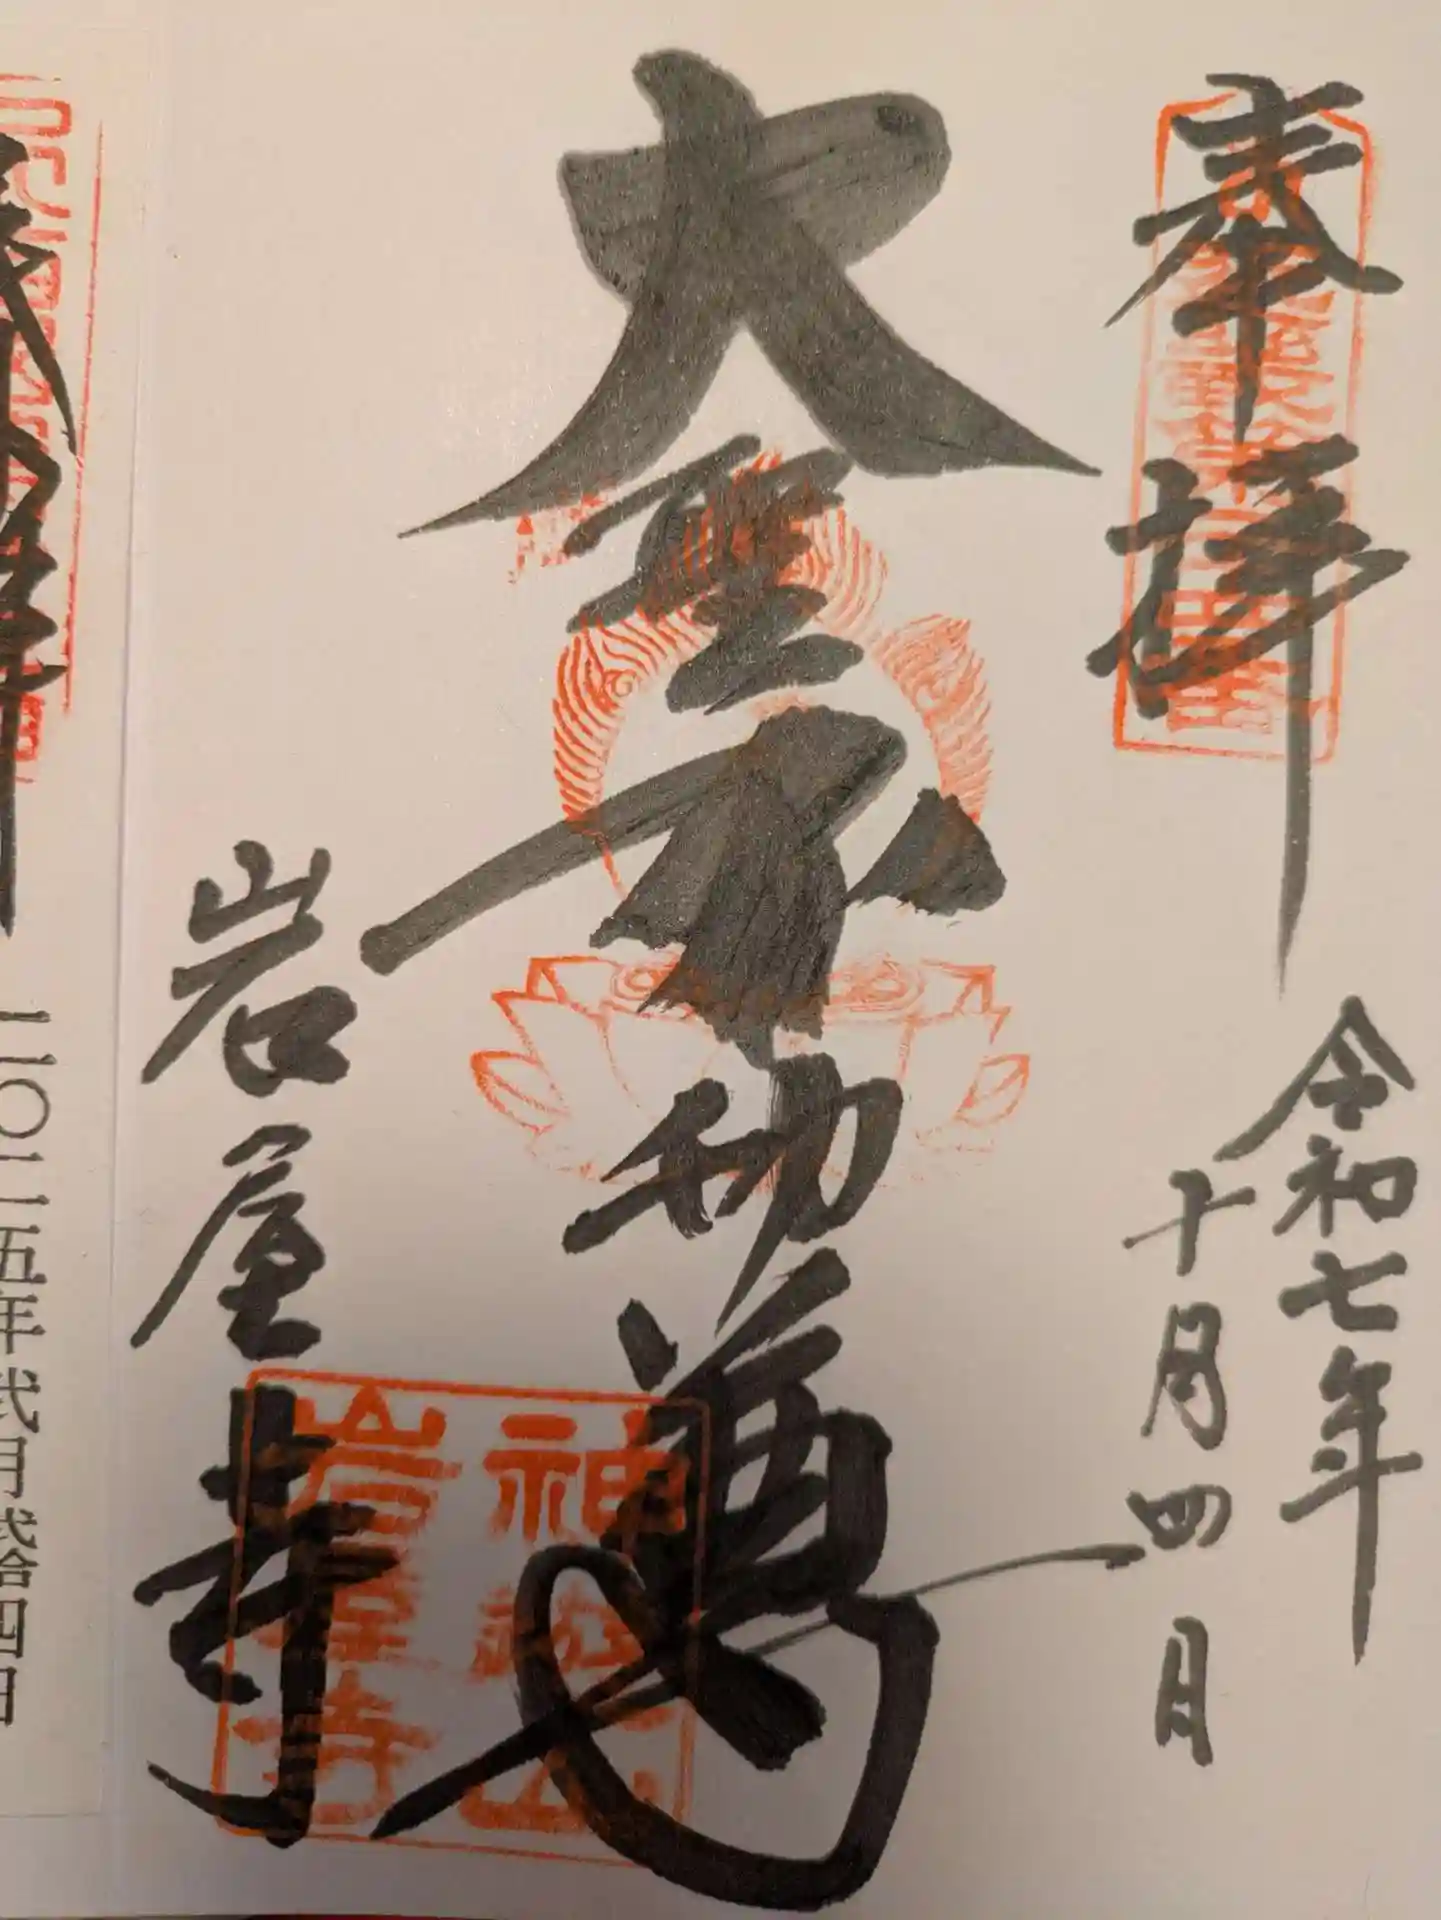 奉拝
令和七年
十月四日
大聖不動尊
岩屋寺
神遊山
岩屋寺
二〇二五年弐月弐拾四日